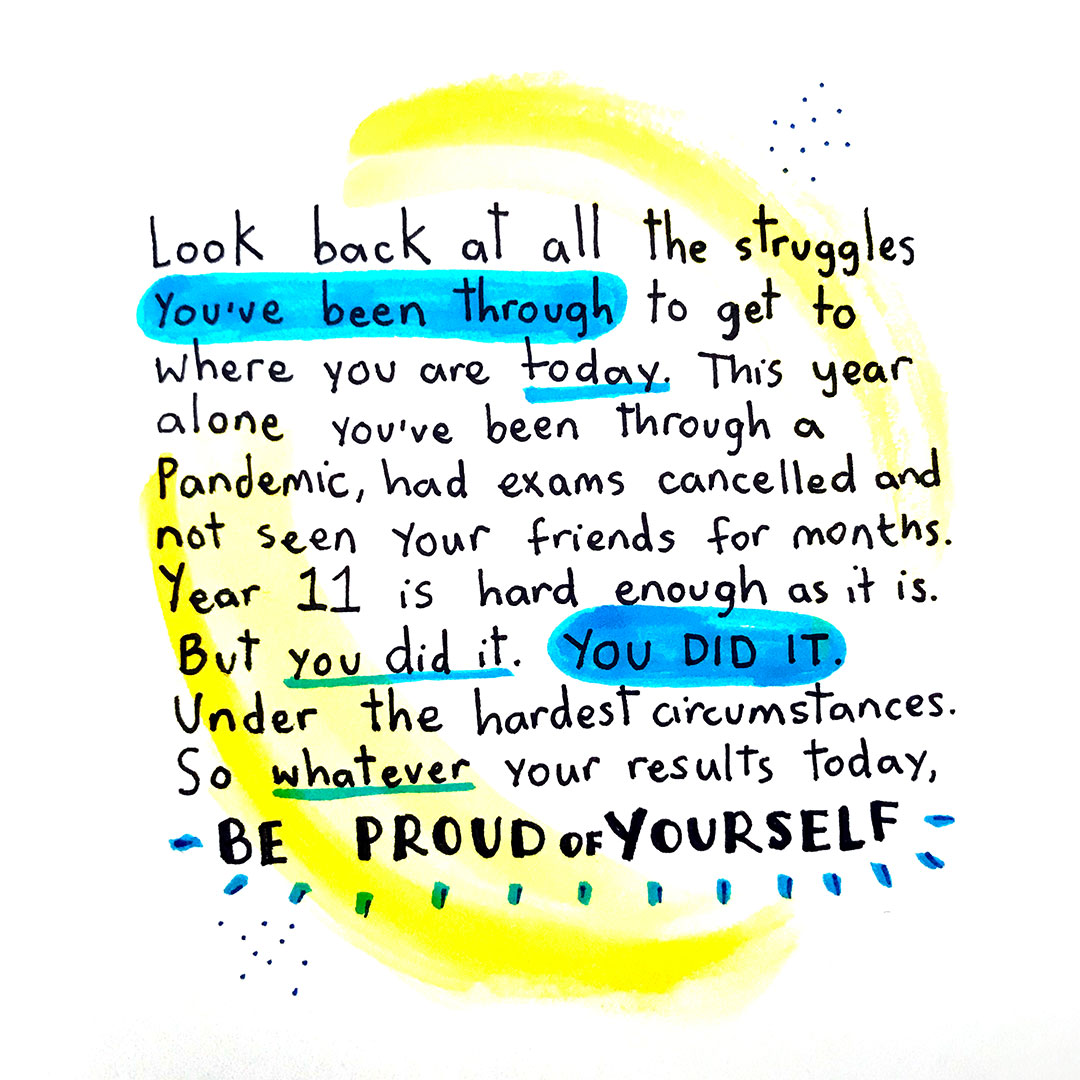 Look back at all the struggles
you've been through to get to
where you are today. This year
alone you've been through a
Pandemic, had exams cancelled and
not seen your friends for months.
Year 11 is hard enough as it is.
But you did it. YOU DID IT.
Under the hardest circumstances.
So whatever your results today,
BE PROUD OF YOURSELF